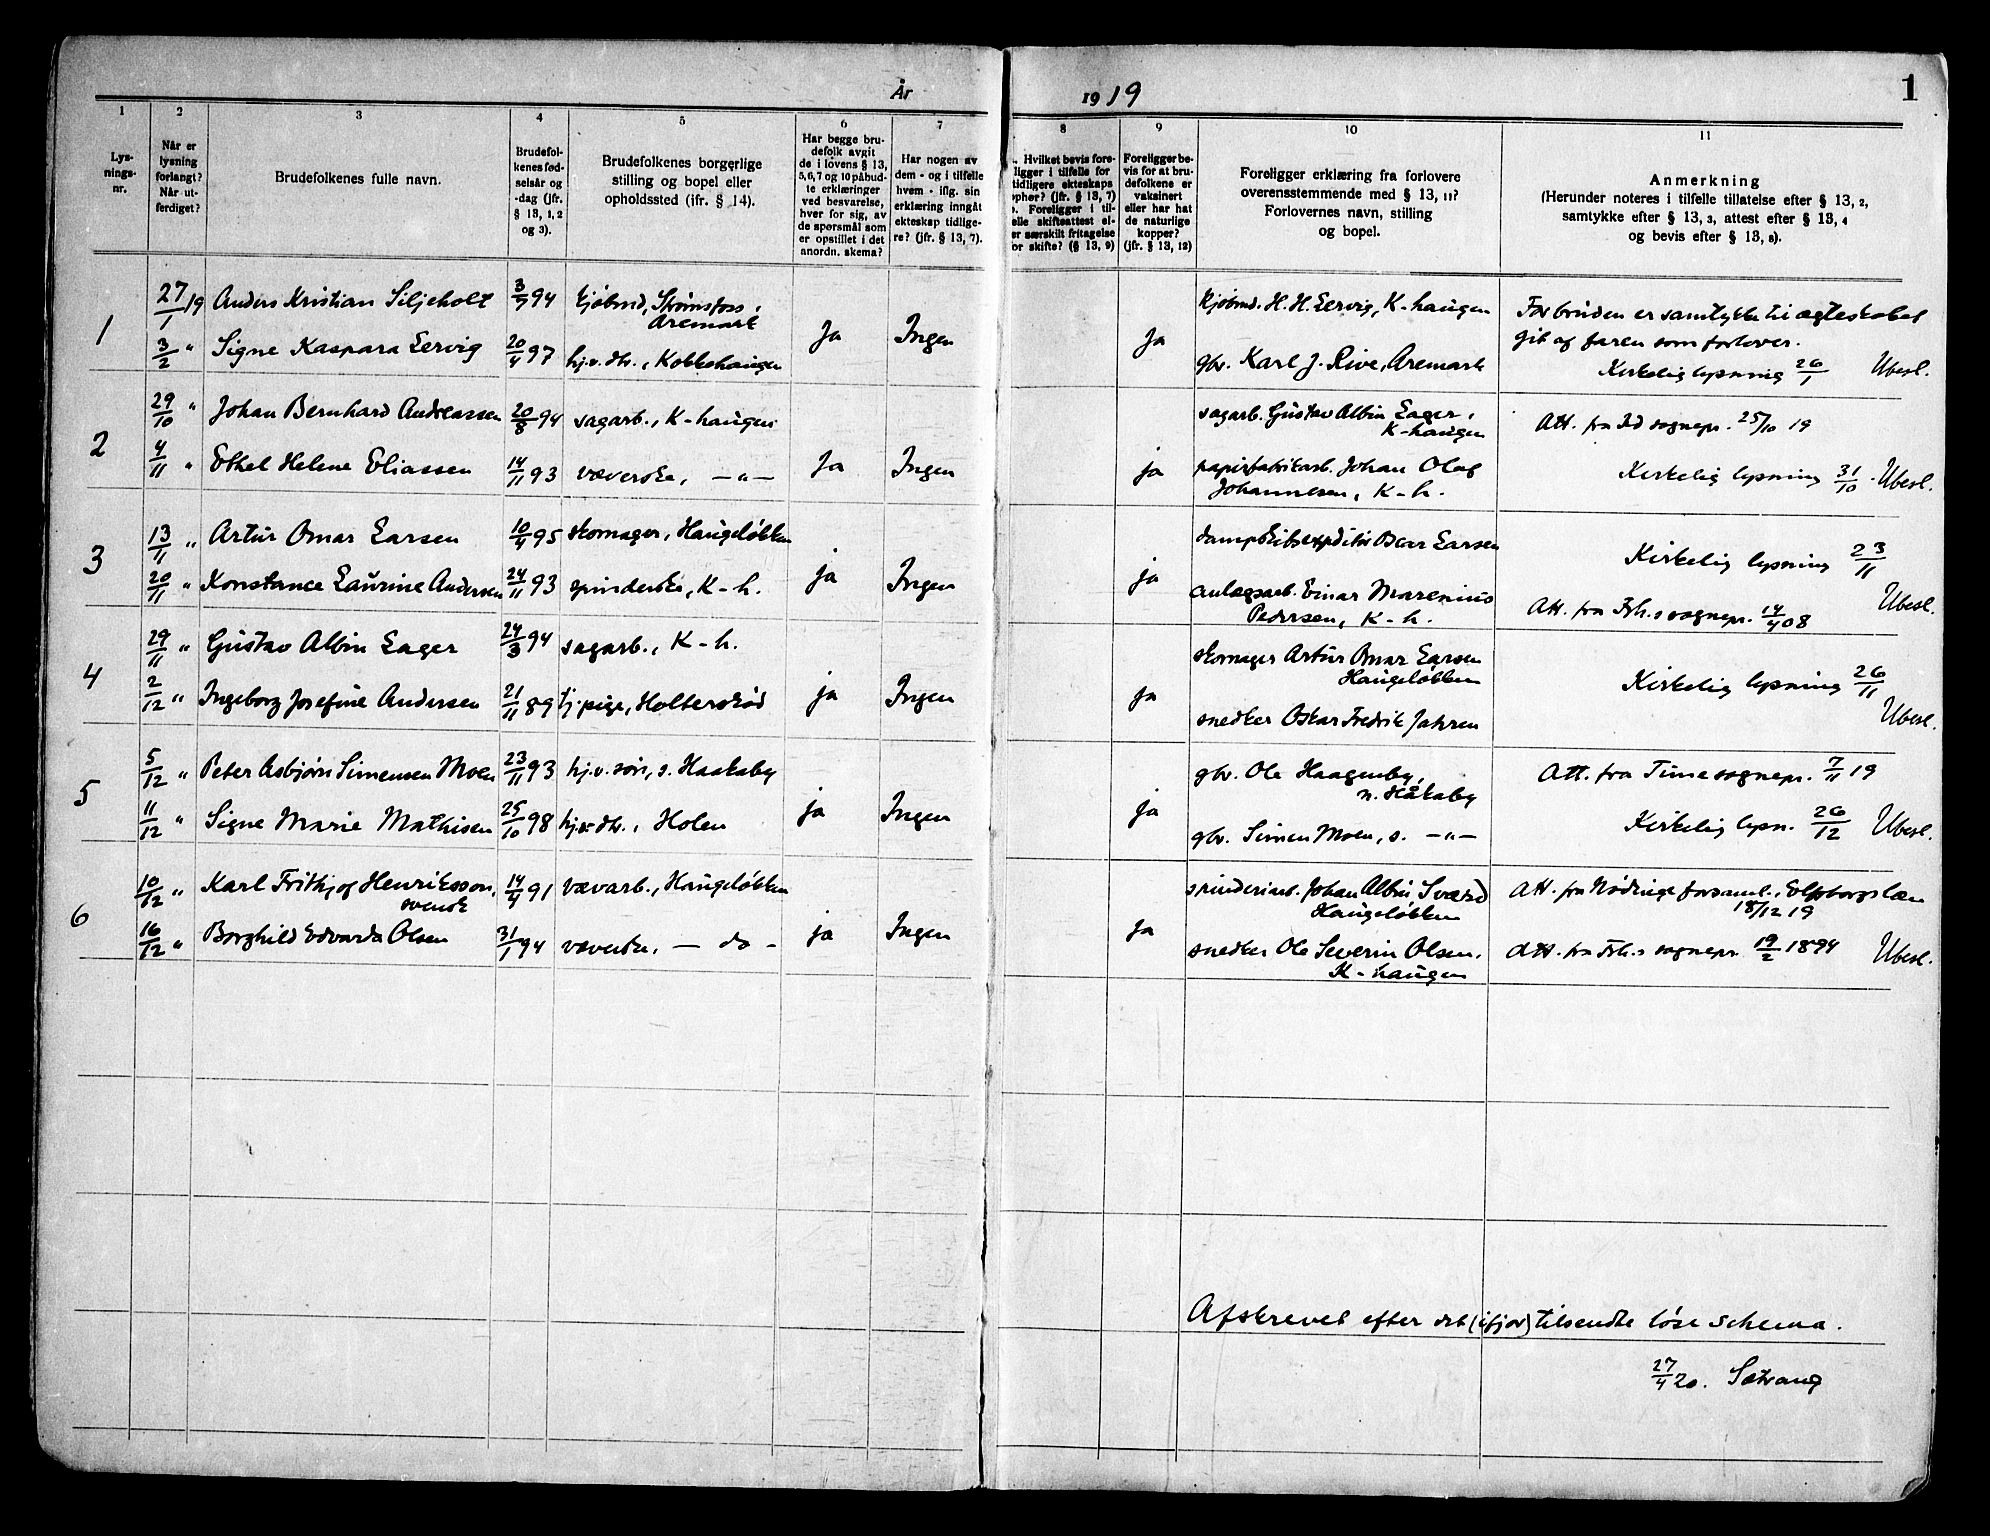 År
1919
1
1
2
3
4
5
6
7
8
9
10
11
Lys-
nings-
nr.
Når er
lysning
forlangt?
Når ut-
ferdiget?
Brudefolkenes fulle navn.
Brudefol-
kenes fød-
selsår og
-dag (jfr.
§ 13, 1, 2
og 3).
Brudefolkenes borgerlige
stilling og bopel eller
opholdssted (jfr. § 14).
Har begge bru-
defolk avgit
de i lovens § 13,
5, 6, 7 og 10 påbud-
te erklæringer
ved besvarelse,
hver for sig, av
de spørsmål som
er opstillet i det
anordn. skema?
Har nogen av
dem - og i tilfelle
hvem - iflg. sin
erklæring inngåt
ekteskap tidlige-
re? (jfr. § 13, 7).
Hvilket bevis fore-
ligger i tilfelle for
tidligere ekteskaps
ophør? (jfr. § 13, 7)
Foreligger i til-
elle skifteattest el-
er særskilt fritagelse
or skifte? (§ 13, 9)
Foreligger be-
vis for at bru-
defolkene er
vaksinert
eller har hat
de naturlige
kopper?
(jfr. § 13, 12)
Foreligger erklæring fra forlovere
overensstemmende med § 13, 11?
Forlovernes navn, stilling
og bopel.
Anmerkning
(Herunder noteres i tilfelle tillatelse efter § 13, 2,
samtykke efter § 13, 3, attest efter § 13, 4
og bevis efter § 13, 8).
1
27/1 19 Anders Kristian Siljeholt 3/7 94 kjøbmd, Strømsfoss,
Aremark
3/2 " Signe Kaspara Lervig 20/4 97 hj.v. dtr., Kobbehaugen
Ja Ingen Ja
kjøbmd. H. H. Lervig, K-haugen
gbr. Karl J. Rive, Aremark
For bruden er samtykke til ægteskabet
git af faren som forlover.
Kirkelig lysning 26/1 Ubesl.
2
29/10 " Johan Bernhard Andreassen 20/8 94 sagarb., K-haugen
4/11 " Ethel Helene Eliassen 14/11 93 væverske, — " —
Ja Ingen ja
sagarb. Gustav Albin Lager,
K-haugen
papirfabrikarb. Johan Olaf
Johannesen, K-h.
Att. fra Id sognepr. 25/10 19
Kirkelig lysning 31/10. Ubesl.
3
13/11 " Artur Omar Larsen 10/4 95 skomager, Haugeløkken
20/11 " Konstance Laurine Andersen 24/11 93 spinderske, K-h.
ja Ingen ja
dampskibsexpeditør Oscar Larsen
anlagsarb. Einar Marenius
Pedersen, K-h.
Kirkelig lysning 23/11
Att. fra Frh.s sognepr. 14/4 08 Ubesl.
4
29/11 " Gustav Albin Lager 24/3 94 sagarb., K-h.
2/12 " Ingeborg Josefine Andersen 21/11 89 tj. pige, Holterskød
ja Ingen ja
skomager Artur Omar Larsen
Haugeløkken
snedker Oskar Fredrik Jahren
Kirkelig lysning 26/11
Ubesl.
5
5/12 " Peter Asbjørn Simensen Moen 23/11 93 hj.v. søn, s. Haakaby
11/12 " Signe Marie Mathisen 25/10 98 hj.v. dtr., Holen
ja Ingen ja
gbr. Ole Haagenby,
n. Håkaby
gbr. Simen Moen, s. — " —
Att. fra Time sognepr. 7/11 19
Kirkelig lysn. 26/12 Ubesl.
6
10/12 " Karl Frithjof Henriksson, 14/4 91 vævarb., Haugeløkken
svensk
16/12 " Borghild Edvarda Olsen 31/1 94 væverske, — do —
ja Ingen ja
spinderiarb. Johan Albin Sværd
Haugeløkken
snedker Ole Severin Olsen,
K-haugen
Att. fra Nødinge forsaml., Elfsborgs læn
18/12 19
Att. fra Frh.s sognepr. 19/2 1894 Ubesl.
Afskrevet efter det (ifjor) tilsendte løse schema.
27/4 20. Sætrang